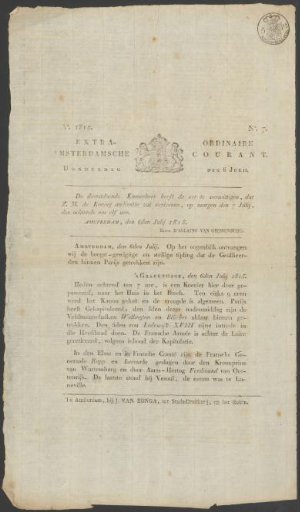 Aº. 1815. Nº. 7.
EXTRA- ORDINAIRE
AMSTERDAMSCHE COURANT.
DONDERDAG DEN 6 JULIJ.
De dienstdoende Kamerheer heeft de eer te verwittigen, dat
Z. M. de Koning audientie zal verleenen, op morgen den 7 Julij,
des ochtends om elf uren.
AMSTERDAM, den 6den Julij 1815.
AMSTERDAM, den 6den Julij. Op het oogenblik ontvangen
wij de hoogst-gewigtige en stellige tijding dat de Geallieer-
den binnen Parijs getrokken zijn.
'sGRAVENHAGE, den 6den Julij 1815.
Heden ochtend ten 7 ure, is een Koerier hier door ge-
passeerd, naar het Huis in het Bosch. Ten einde 9 uren
werd het Kanon gelost en de vreugde is algemeen. Parijs
heeft Gekapituleerd, den 5den dezer zijn de
Veldmaarschalken Wellington en Blücher aldaar binnen ge-
trokken. Den 6den zou Lodewijk XVIII zijne intrede in
die Hoofdstad doen. De Fransche Armée is achter de Loire
geretireerd, volgens inhoud der Kapitulatie.
In den Elzas en in Franche Comté zijn de Fransche Ge-
neraals Rapp en Lecourbe geslagen door den Kroonprins
van Wurtemberg en door den Aarts-Hertog Ferdinand van Oos-
tenrijk. De laatste stond bij Vesoul, de eerste was te Lu-
neville.
Te Amsterdam, bij J. VAN ZONGA, ter Stads-Drukkerij, op het Rokin.